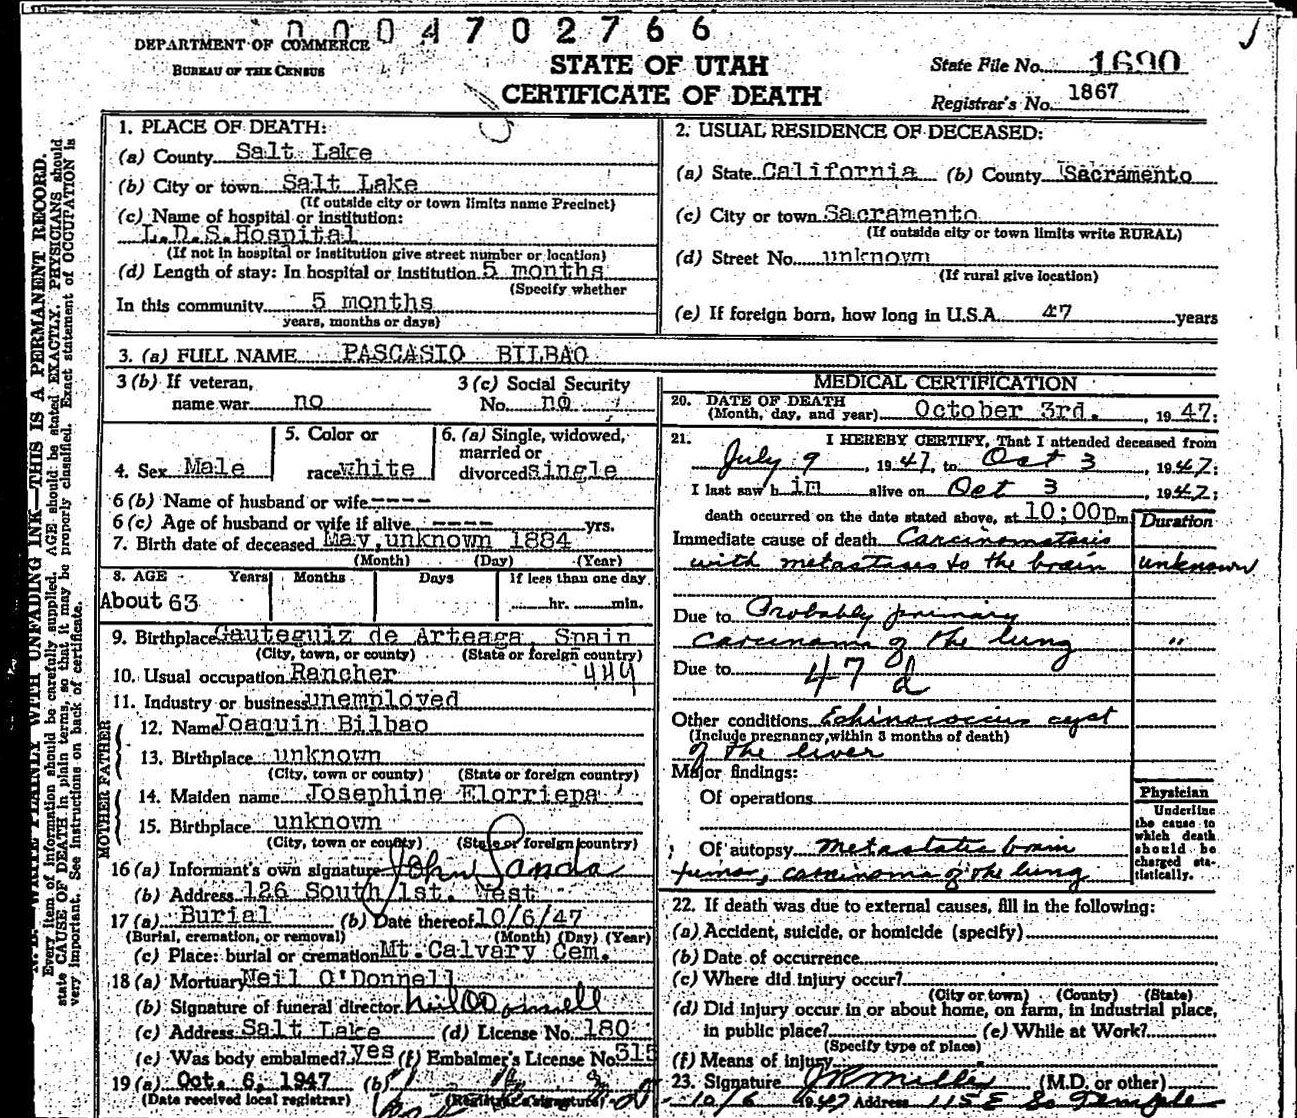 0004702766
DEPARTMENT OF COMMERCE
BUREAU OF THE CENSUS
STATE OF UTAH
CERTIFICATE OF DEATH
State File No. 1690
Registrar's No. 1867
N. B.—WRITE PLAINLY WITH UNFADING INK—THIS IS A PERMANENT RECORD.
Every item of information should be carefully supplied. AGE should be stated EXACTLY. PHYSICIANS should
state CAUSE OF DEATH in plain terms, so that it may be properly classified. Exact statement of OCCUPATION is
very important. See instructions on back of certificate.
1. PLACE OF DEATH:
(a) County Salt Lake
(b) City or town Salt Lake
(If outside city or town limits name Precinct)
(c) Name of hospital or institution:
L.D.S. Hospital
(If not in hospital or institution give street number or location)
(d) Length of stay: In hospital or institution 5 months
(Specify whether
In this community 5 months
years, months or days)
2. USUAL RESIDENCE OF DECEASED:
(a) State California (b) County Sacramento
(c) City or town Sacramento
(If outside city or town limits write RURAL)
(d) Street No. unknown
(If rural give location)
(e) If foreign born, how long in U.S.A. 47 years
3. (a) FULL NAME PASCASIO BILBAO
3 (b) If veteran,
name war no
3 (c) Social Security
No. no
4. Sex Male
5. Color or
race white
6. (a) Single, widowed,
married or
divorced single
6 (b) Name of husband or wife ----
6 (c) Age of husband or wife if alive ---- yrs.
7. Birth date of deceased May, unknown 1884
(Month) (Day) (Year)
8. AGE Years Months Days If less than one day
About 63 hr. min.
9. Birthplace Gauteguiz de Arteaga, Spain
(City, town, or county) (State or foreign country)
10. Usual occupation Rancher 449
11. Industry or business unemployed
FATHER
12. Name Joaquin Bilbao
13. Birthplace unknown
(City, town or county) (State or foreign country)
MOTHER
14. Maiden name Josephine Elorriepa
15. Birthplace unknown
(City, town or county) (State or foreign country)
16 (a) Informant's own signature John Landa
(b) Address 126 South 1st. West
17 (a) Burial (b) Date thereof 10/6/47
(Burial, cremation, or removal) (Month) (Day) (Year)
(c) Place: burial or cremation Mt. Calvary Cem.
18 (a) Mortuary Neil O'Donnell
(b) Signature of funeral director Neil O'Donnell
(c) Address Salt Lake (d) License No. 180
(e) Was body embalmed? yes (f) Embalmer's License No. 315
19 (a) Oct. 6, 1947 (b)
(Date received local registrar) (Registrar's signature)
MEDICAL CERTIFICATION
20. DATE OF DEATH
(Month, day, and year) October 3rd. , 1947:
21. I HEREBY CERTIFY, That I attended deceased from
July 9 , 1947, to Oct 3 , 1947:
I last saw him alive on Oct 3 , 1947;
death occurred on the date stated above, at 10:00pm
Duration
Immediate cause of death Carcinomatosis
with metastases to the brain unknown
Due to Probably primary
carcinoma of the lung "
Due to 47 d
Other conditions Echinococcus cyst
(Include pregnancy within 3 months of death)
of the liver
Major findings:
Of operations
Of autopsy Metastatic brain
tumor, carcinoma of the lung
Physician
Underline
the cause to
which death
should be
charged sta-
tistically.
22. If death was due to external causes, fill in the following:
(a) Accident, suicide, or homicide (specify)
(b) Date of occurrence
(c) Where did injury occur?
(City or town) (County) (State)
(d) Did injury occur in or about home, on farm, in industrial place,
in public place? (e) While at Work?
(Specify type of place)
(f) Means of injury
23. Signature (M.D. or other)
10/6 1947 Address 115 E So Temple